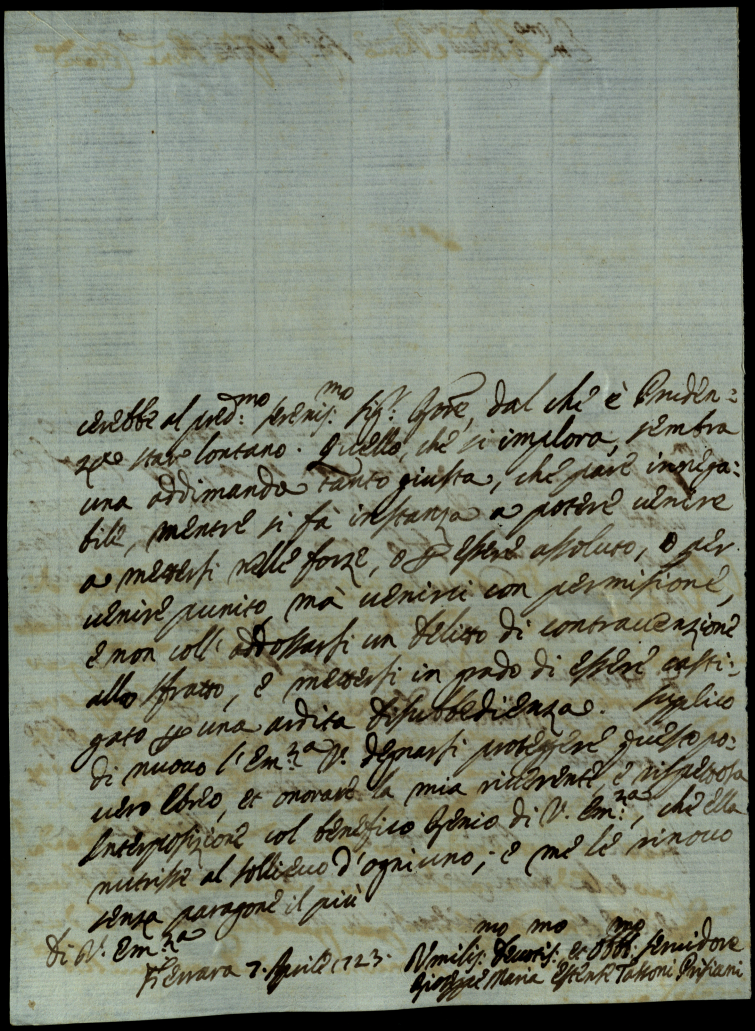 cerebbe al pred:mo serenis:mo sig:r Gore, dal che è Pruden=
za stare lontano. Quello, che si implora, sembra
una addimanda tanto giusta, che pare innega:
bile, mentre si fà instanza a potere venire
a mettersi nelle forze, o p essere assoluto, o per
venire punito, mà venirvi con permissione,
e non coll' addossarsi un delitto di contravenzione
allo sfratto, e mettersi in grado di essere casti:
gato p una ardita disubbedienza. Suplico
di nuovo l'Em:za V. degnarsi proteggere questo po:
vero Ebreo, et onorare la mia riverente, e rispettosa
Interposizione col benefico Genio di V. Em:za, che ella
nutrisce al sollievo d'ogniuno; e me le rinovo
senza paragone il più
Di V. Em:za
Ferrara 7. Aprile 1723.
Umilis:mo Devotis:mo et Obbl:mo servidore
Gioseppe Maria Estense Tassoni Prisiani